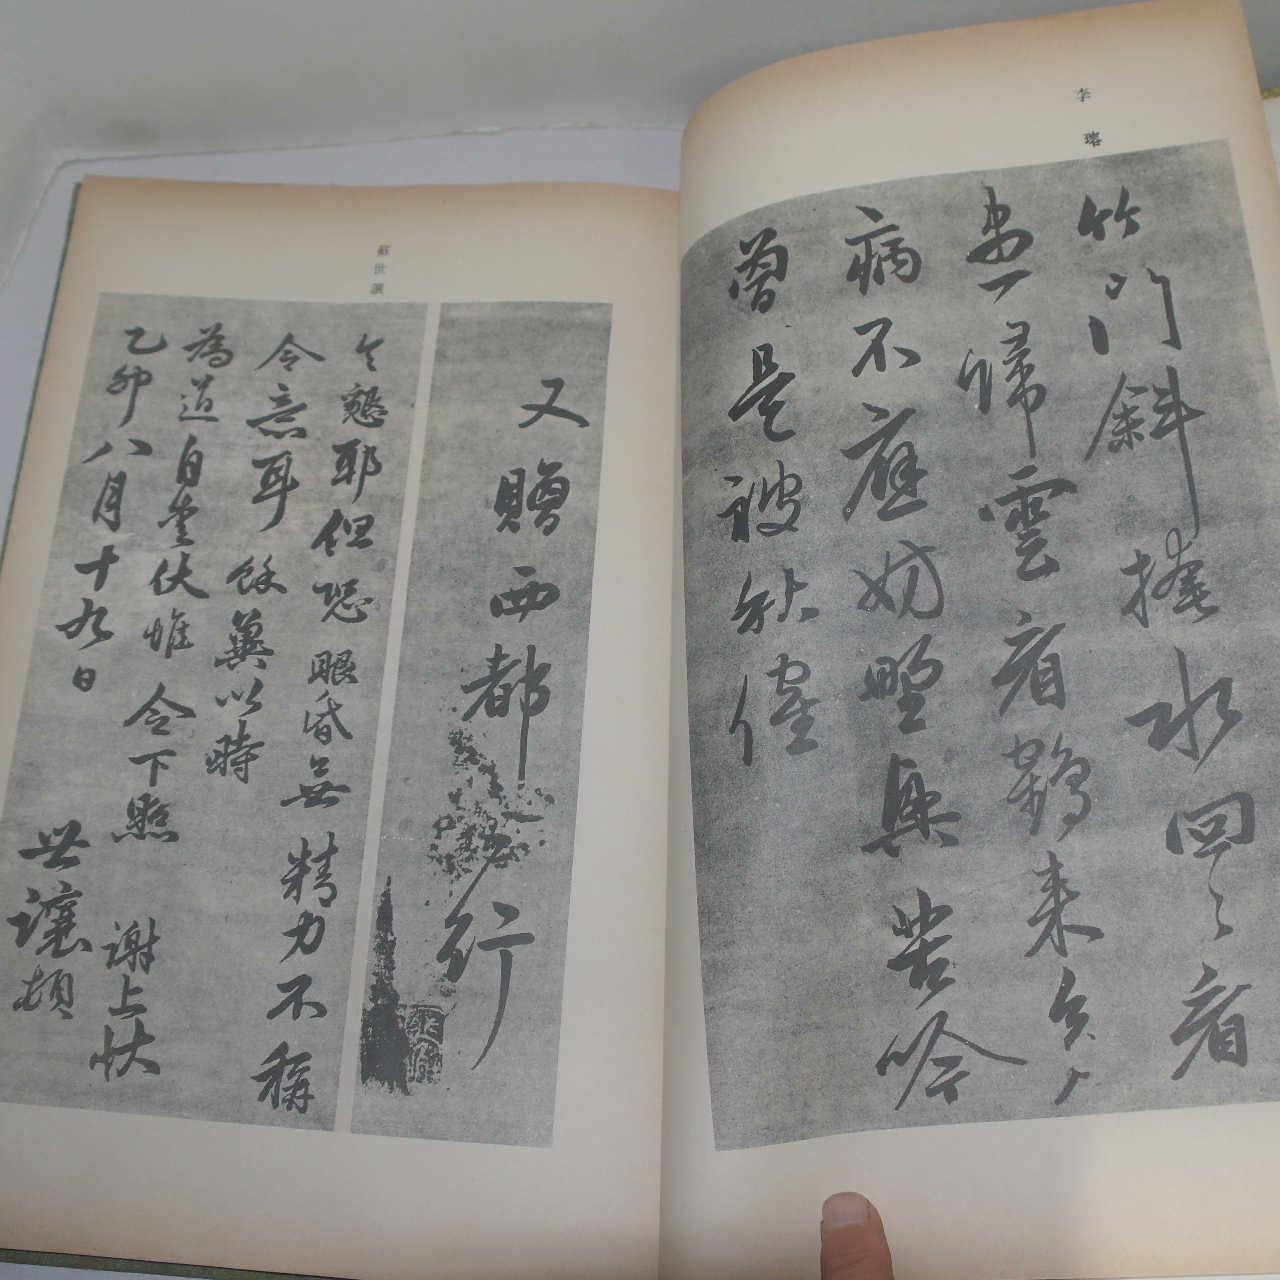 李
珞
竹門斜掩水回〻看
盡歸雲看鶴來
病不應妨野興苦吟
曾是被秋催
蘇世讓
又贈西都
行
懇耶但恐眼昏無精力不稱
令意耳餘冀以時
為道自重伏惟令下照謝上狀
乙卯八月十九日世讓頓